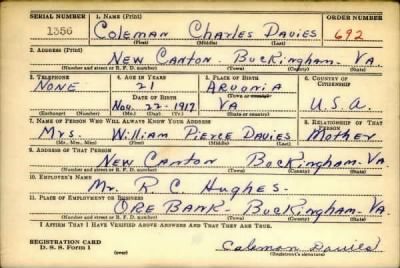 SERIAL NUMBER 1. NAME (Print) ORDER NUMBER
1356 Coleman Charles Davies 692
(First) (Middle) (Last)
2. ADDRESS (Print)
New Canton. Buckingham. Va.
(Number and street or R. F. D. number) (Town) (County) (State)
3. TELEPHONE 4. AGE IN YEARS 5. PLACE OF BIRTH 6. COUNTRY OF CITIZENSHIP
None 21 Arvonia
DATE OF BIRTH (Town or county)
Nov. 22. 1917 Va U.S.A.
(Exchange) (Number) (Mo.) (Day) (Yr.) (State or country)
7. NAME OF PERSON WHO WILL ALWAYS KNOW YOUR ADDRESS 8. RELATIONSHIP OF THAT PERSON
Mrs. William Pierce Davies Mother
(Mr., Mrs., Miss) (First) (Middle) (Last)
9. ADDRESS OF THAT PERSON
New Canton Buckingham. Va
(Number and street or R. F. D. number) (Town) (County) (State)
10. EMPLOYER'S NAME
Mr. R. C. Hughes.
11. PLACE OF EMPLOYMENT OR BUSINESS
Ore Bank- Buckingham. Va
(Number and street or R. F. D. number) (Town) (County) (State)
I AFFIRM THAT I HAVE VERIFIED ABOVE ANSWERS AND THAT THEY ARE TRUE.
REGISTRATION CARD
D. S. S. Form 1 Coleman Davies
(Registrant's signature)